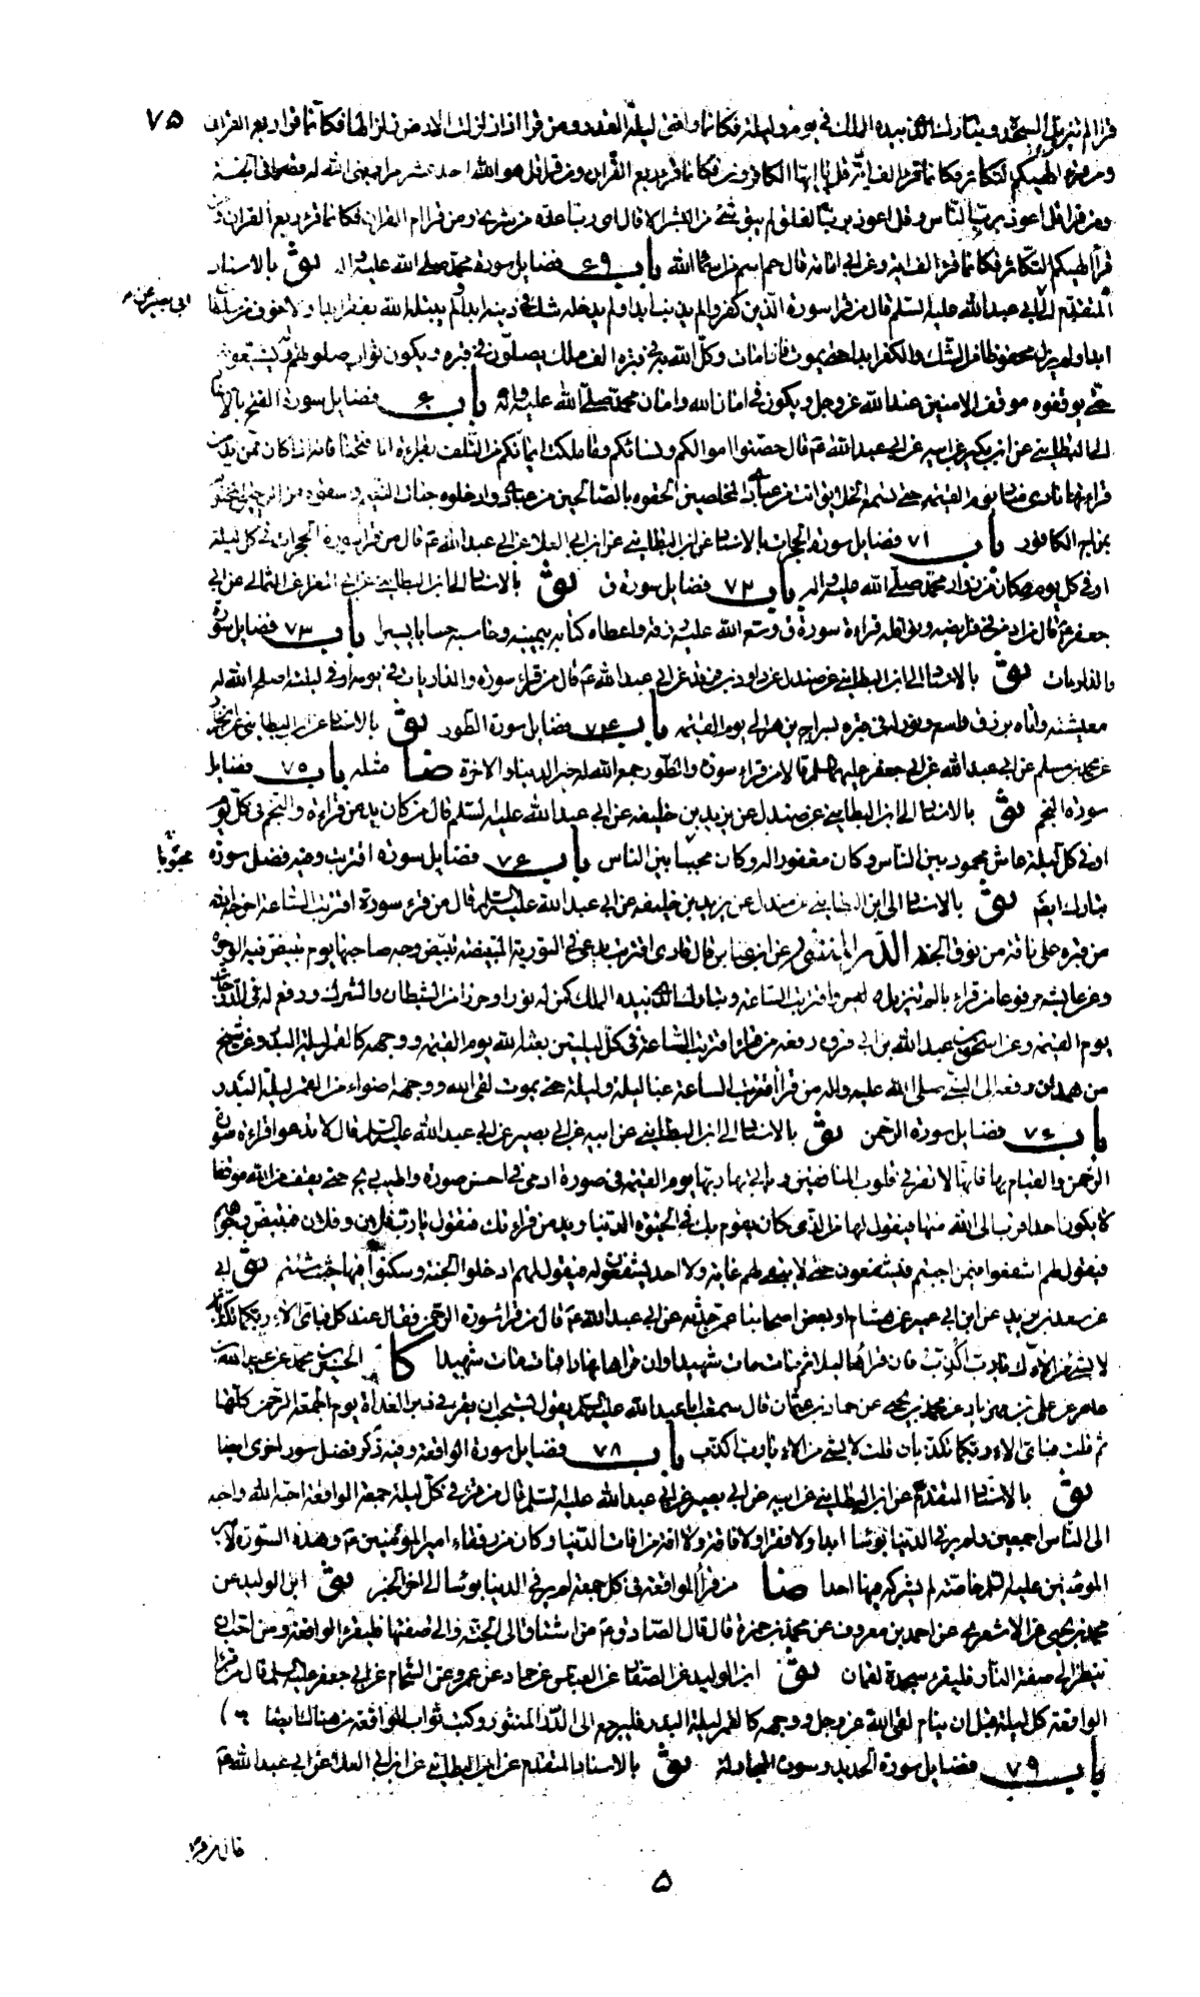 ٧۵
قرأ الم تنزيل السجدة وتبارك الذى بيده الملك فى يوم وليلة فكانما وافق ليلة القدر ومن قرأ اذا زلزلت الارض زلزالها فكانما قرا ربع القران
ومن قرء الهيكم التكاثر فكانما قرء الف اية قل يا ايها الكافرون فكانما قرء ربع القران ومن قرأ قل هو الله احد عشر مرات بنى الله له قصرا فى الجنة
ومن قرا قل اعوذ برب الناس وقل اعوذ برب الفلق لم يبق شئ من البشر الا قال اى رب اعذه من شرى ومن قرا ام القران فكانما قرء ربع القران ومن
قرأ الهيكم التكاثر فكانما قرء الف اية وعن ابى امامة قال حم اسم من اسماء الله باب ۶٩ فضايل سورة محمد صلى الله عليه واله ثو بالاسناد
المتقدم الى ابى عبد الله عليه السلم قال من قرا سورة الذين كفروا لم يذنب ابدا ولم يدخله شك فى دينه ابدا ولم يبتله الله بفقر ابدا ولا خوف من سلطان
ابى بصير عن
ابدا ولم يزل محفوظا من الشك والكفر ابدا حتى يموت فاذا مات وكل الله به فى قبره الف ملك يصلون فى قبره ويكون ثواب صلوتهم له يشيعونه
حتى يوقفوه موقف الامنين عند الله عز وجل ويكون فى امان الله وامان محمد صلى الله عليه واله باب فضايل سورة الفتح بالاسناد
الى البطاينى عن ابن بكير عن ابيه عن ابى عبد الله ع قال حصنوا اموالكم ونسائكم وما ملكت ايمانكم من التلف بقراءة انا فتحنا فانه اذا كان ممن يدمن
قراءتها نادى مناد يوم القيمة حتى تسمع الخلايق انت من عبادى المخلصين الحقوه بالصالحين من عبادى وادخلوه جنات النعيم واسقوه من الرحيق المختوم
بمزاج الكافور باب ٧١ فضايل سورة الحجرات بالاسناد عن ابن البطاينى عن ابن ابى العلا عن ابى عبد الله ع قال من قرأ سورة الحجرات فى كل ليلة
او فى كل يوم كان من زوار محمد صلى الله عليه واله باب ٧٢ فضايل سورة ق ثو بالاسناد الى ابن البطاينى عن ابى المغرا عن الثمالى عن ابى
جعفر ع قال من ادمن فى فرايضه ونوافله قراءة سورة ق وسع الله عليه رزقه واعطاه كتابه بيمينه وحاسبه حسابا يسيرا باب ٧٣ فضايل سورة
والذاريات ثو بالاسناد الى ابن البطاينى عن صندل عن داود بن فرقد عن ابى عبد الله ع قال من قرء سورة والذاريات فى يومه او فى ليلته اصلح الله له
معيشته واتاه برزق واسع ونور له فى قبره بسراج يزهر الى يوم القيمة باب ٧۴ فضايل سورة الطور ثو بالاسناد عن ابن البطاينى عن الخزاز
عن محمد بن مسلم عن ابى عبد الله عن ابى جعفر عليهما السلم قالا من قراء سورة والطور جمع الله له خير الدنيا والاخرة ضا مثله باب ٧۵ فضايل
سورة النجم ثو بالاسناد الى ابن البطاينى عن صندل عن يزيد بن خليفه عن ابى عبد الله عليه السلم قال من كان يدمن قراءة والنجم فى كل يوم
او فى كل ليلة عاش محمود بين الناس وكان مغفورا له وكان محببا بين الناس باب ٧۶ فضايل سورة اقتربت وفيه فضل سورة
محبوبا
تبارك ايضا ثو بالاسناد الى ابن البطاينى عن صندل عن يزيد بن خليفه عن ابى عبد الله عليه السلم قال من قرء سورة اقتربت الساعة اخرجه الله
من قبره على ناقة من نوق الجنه الدر المنثور عن ابن عباس قال قارى اقتربت يدعى فى التورية المبيضه تبيض وجه صاحبها يوم تبيض فيه الوجوه
وعن عايشه مرفوعا من قراء بالم تنزيل ويس واقتربت الساعة وتبارك الذى بيده الملك كن له نورا وحرزا من الشيطان والشرك ورفع له فى الدرجات
يوم القيمة وعن اسحق بن عبد الله بن ابى فروه رفعه من قرا اقتربت الساعة فى كل ليلتين بعثه الله يوم القيمة ووجهه كالقمر ليلة البدر وعن شيخ
من همدان رفعه الى النبى صلى الله عليه واله من قرأ اقتربت الساعة غبا ليلة وليلة حتى يموت لقى الله ووجهه اضواء من القمر ليلة البدر
باب فضايل سورة الرحمن ثو بالاسناد الى ابن البطاينى عن ابيه عن ابى بصير عن ابى عبد الله عليه السلم قال لا تدعوا قراءة سورة
الرحمن والقيام بها فانها لا تقر فى قلوب المنافقين ويأتى بها ربها يوم القيمة فى صورة ادمى فى احسن صورة واطيب ريح حتى يقف من الله موقفا
لا يكون احد اقرب الى الله منها فيقول لها من الذى كان يقوم بك فى الحيوة الدنيا ويدمن قراءتك فتقول يارب فلان وفلان فتبيض وجوههم
فيقول لهم اشفعوا فيمن احببتم فيشفعون حتى لا يبقى لهم غاية ولا احد يشفعون له فيقول لهم ادخلوا الجنة واسكنوا فيها حيث شئتم ثو ابى
عن سعد عن ابن يزيد عن ابن ابى عمير عن هشام او بعض اصحابنا عمن حدثه عن ابى عبد الله ع قال من قرا سورة الرحمن فقال عند كل فباى الاء ربكما تكذبان
لا بشئ من الاءك يا رب اكذب فان قرأها ليلا ثم مات مات شهيدا وان قراها نهارا فمات مات شهيدا كا الحسين بن محمد عن عبد الله بن
عامر عن على بن مهزيار عن محمد بن يحيى عن حماد بن عثمان قال سمعت ابا عبد الله عليه السلم يقول يستحب ان يقرء فى دبر الغداة يوم الجمعة الرحمن كلها
ثم قلت فباى الاء ربكما تكذبان قلت لا بشئ من الاءك يا رب اكذب باب ٧٨ فضايل سورة الواقعة وفيه ذكر فضل سور اخرى ايضا
ثو بالاسناد المتقدم عن ابن البطاينى عن ابيه عن ابى بصير عن ابى عبد الله عليه السلم قال من قرء فى كل ليلة جمعة الواقعة احبه الله واحبه
الى الناس اجمعين ولم ير فى الدنيا بؤسا ابدا ولا فقرا ولا فاقة ولا افة من افات الدنيا وكان من رفقاء امير المؤمنين ع وهذه السورة لامير
المؤمنين عليه السلم خاصة لم يشركه فيها احد ضا من قرأ الواقعة فى كل جمعة لم ير فى الدنيا بؤسا الى اخر الخبر ثو ابن الوليد عن
محمد بن يحيى عن الاشعرى عن احمد بن معروف عن محمد بن حمزة قال قال الصادق ع من اشتاق الى الجنة والى صفتها فليقرء الواقعة ومن احب ان
ينظر الى صفة النار فليقرء سجدة لقمان ثو ابن الوليد عن الصفار عن العباس عن حماد عن عمرو عن الشحام عن ابى جعفر عليه السلم قال من قرء
الواقعة كل ليلة قبل ان ينام لقى الله عز وجل ووجهه كالقمر ليلة البدر فليرجع الى الدر المنثور وكتب ثواب الواقعة من هنالك ايضا
باب ٧٩ فضايل سورة الحديد وسورة المجادلة ثو بالاسناد المتقدم عن ابن البطاينى عن ابن ابى العلا عن ابى عبد الله ع
قال من قرء
۵